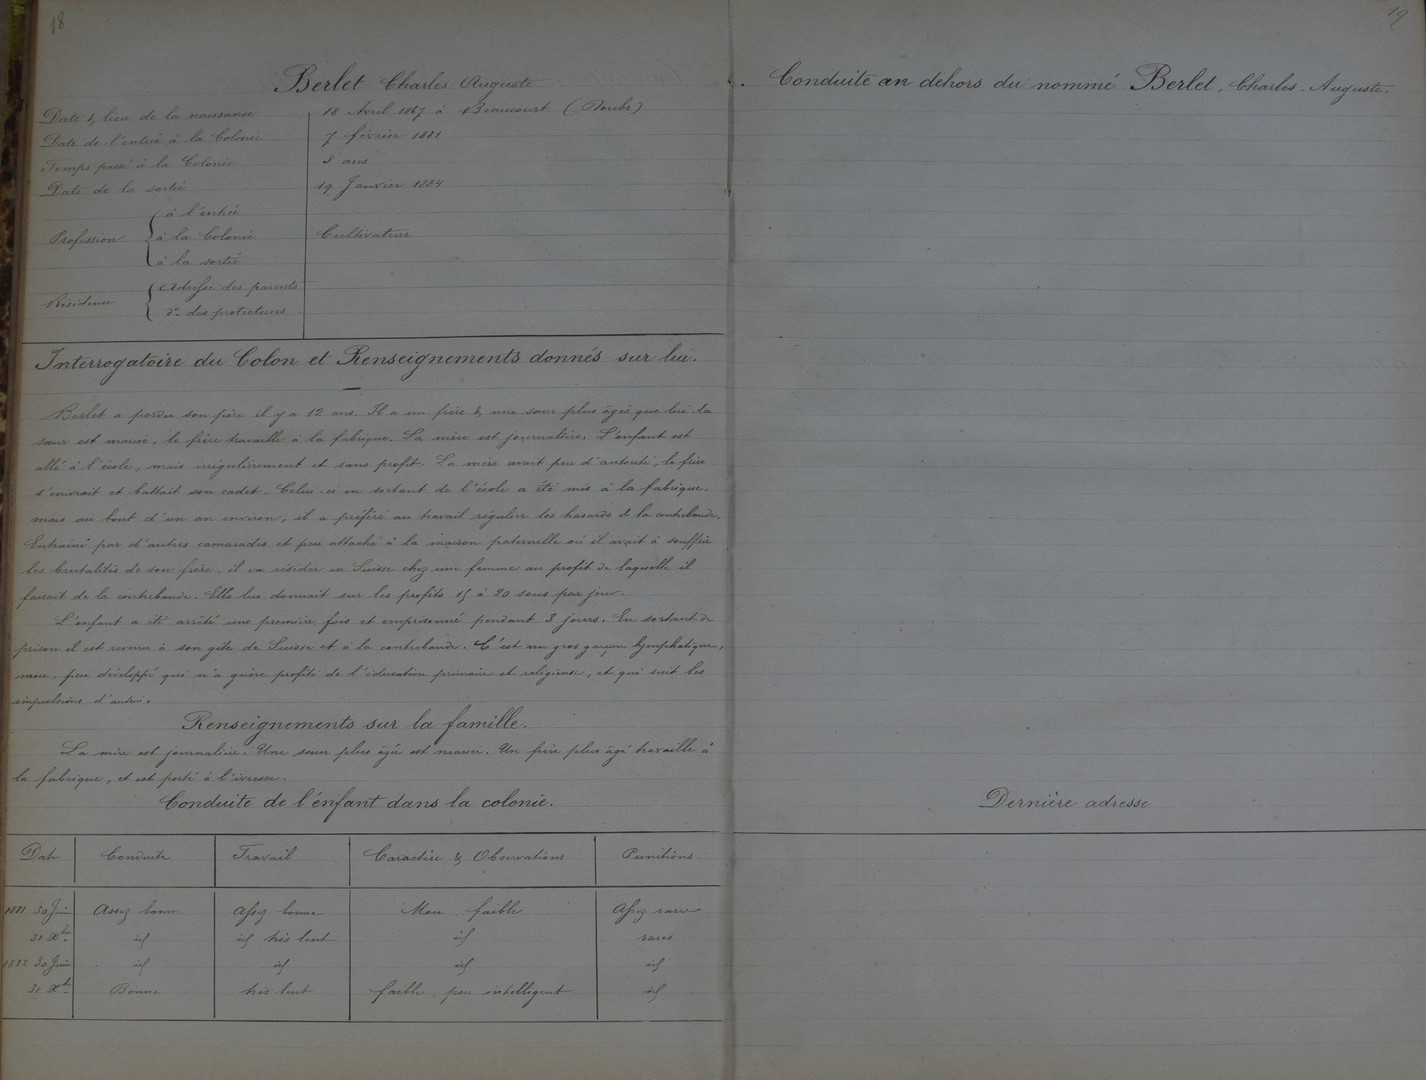 18
Berlet Charles Auguste
Date & lieu de la naissance
18 Avril 1867 à Beaucourt (Doubs)
Date de l'entrée à la Colonie
7 février 1881
Temps passé à la Colonie
3 ans
Date de la sortie
19 Janvier 1884
Profession
à l'entrée
à la Colonie
Cultivateur
à la sortie
Résidence
Adresse des parents
do des protecteurs
Interrogatoire du Colon et Renseignements donnés sur lui.
Berlet a perdu son père il y a 12 ans. Il a un frère & une sœur plus âgés que lui. La
sœur est mariée, le frère travaille à la fabrique. La mère est journalière. L'enfant est
allé à l'école, mais irrégulièrement et sans profit. La mère avait peu d'autorité, le frère
s'enivrait et battait son cadet. Celui-ci en sortant de l'école a été mis à la fabrique,
mais au bout d'un an environ, il a préféré au travail régulier les hasards de la contrebande.
Entrainé par d'autres camarades et peu attaché à la maison paternelle où il avait à souffrir
les brutalités de son frère, il va résider en Suisse chez une femme au profit de laquelle il
faisait de la contrebande. Elle lui donnait sur les profits 15 à 20 sous par jour.
L'enfant a été arrêté une première fois et emprisonné pendant 3 jours. En sortant de
prison il est revenu à son gîte de Suisse et à la contrebande. C'est un gros garçon lymphatique,
mou, peu développé qui n'a guère profité de l'éducation primaire et religieuse, et qui suit les
impulsions d'autrui.
Renseignements sur la famille.
La mère est journalière. Une sœur plus âgée est mariée. Un frère plus âgé travaille à
la fabrique, et est porté à l'ivresse.
Conduite de l'enfant dans la colonie.
Date Conduite Travail Caractère & Observations Punitions.
1881 30 Juin Assez bonne Assez bonne Mou faible Assez rares
31 Xbre id id très lent id rares
1882 30 Juin id id id id
31 Xbre Bonne très lent faible, peu intelligent id
19
Conduite au dehors du nommé Berlet, Charles-Auguste.
Dernière adresse